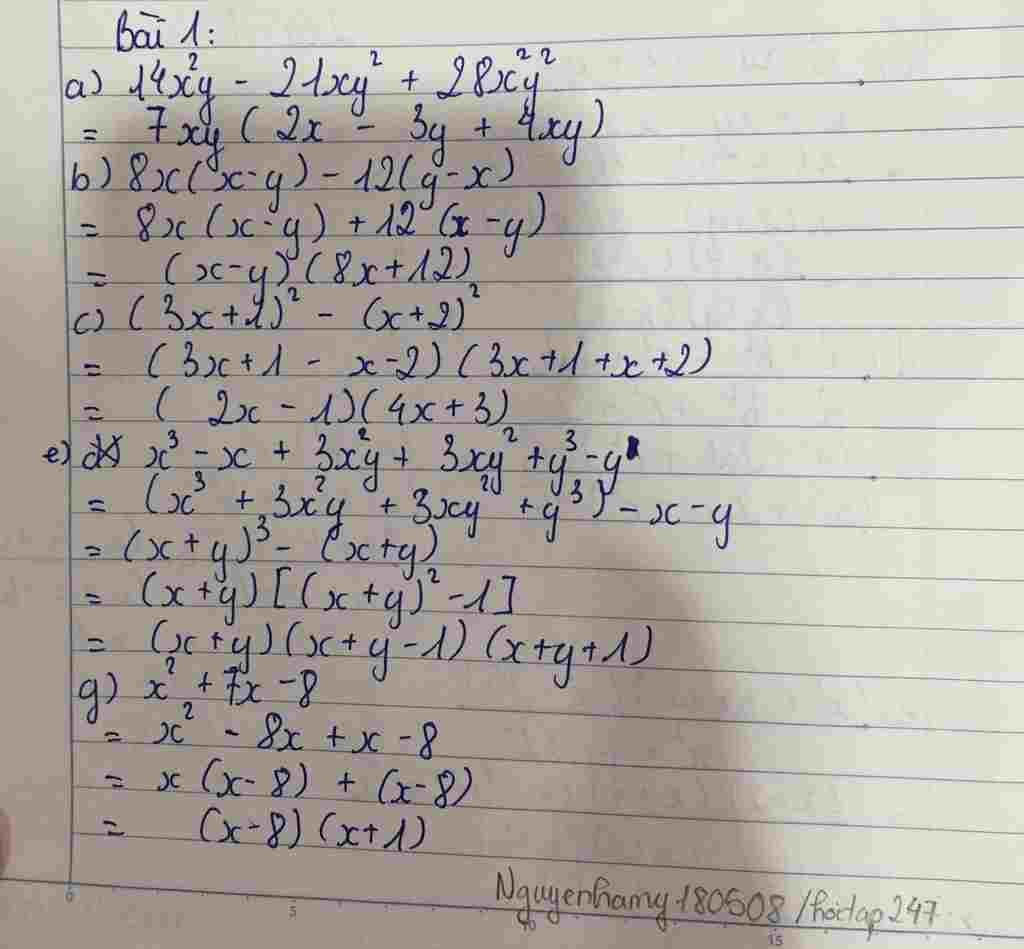 Bài 1:
a) 14x²y - 21xy² + 28x²y²
= 7xy ( 2x - 3y + 4xy)
b) 8x(x-y) - 12(y-x)
= 8x (x-y) + 12 (x-y)
= (x-y) (8x+12)
c) ( 3x+1)² - (x+2)²
= ( 3x+1 - x-2) (3x+1+x+2)
= ( 2x - 1)(4x+3)
e) x³ - x + 3x²y + 3xy² + y³ - y
= (x³ + 3x²y + 3xy² + y³) - x - y
= (x+y)³ - (x+y)
= (x+y) [(x+y)² -1]
= (x+y) (x+y-1) (x+y+1)
g) x² + 7x - 8
= x² - 8x + x - 8
= x (x-8) + (x-8)
= (x-8) (x+1)
Nguyenhamy180508/hoidap247
0 5 10 15